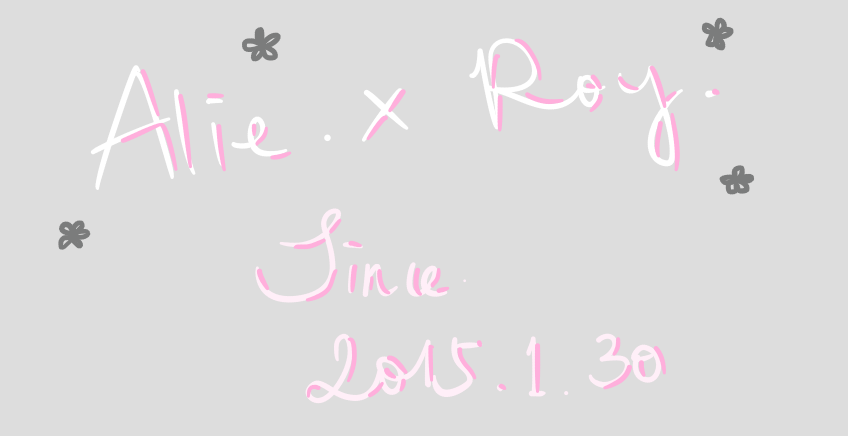 Alie. x Roy.
Since.
2015.1.30